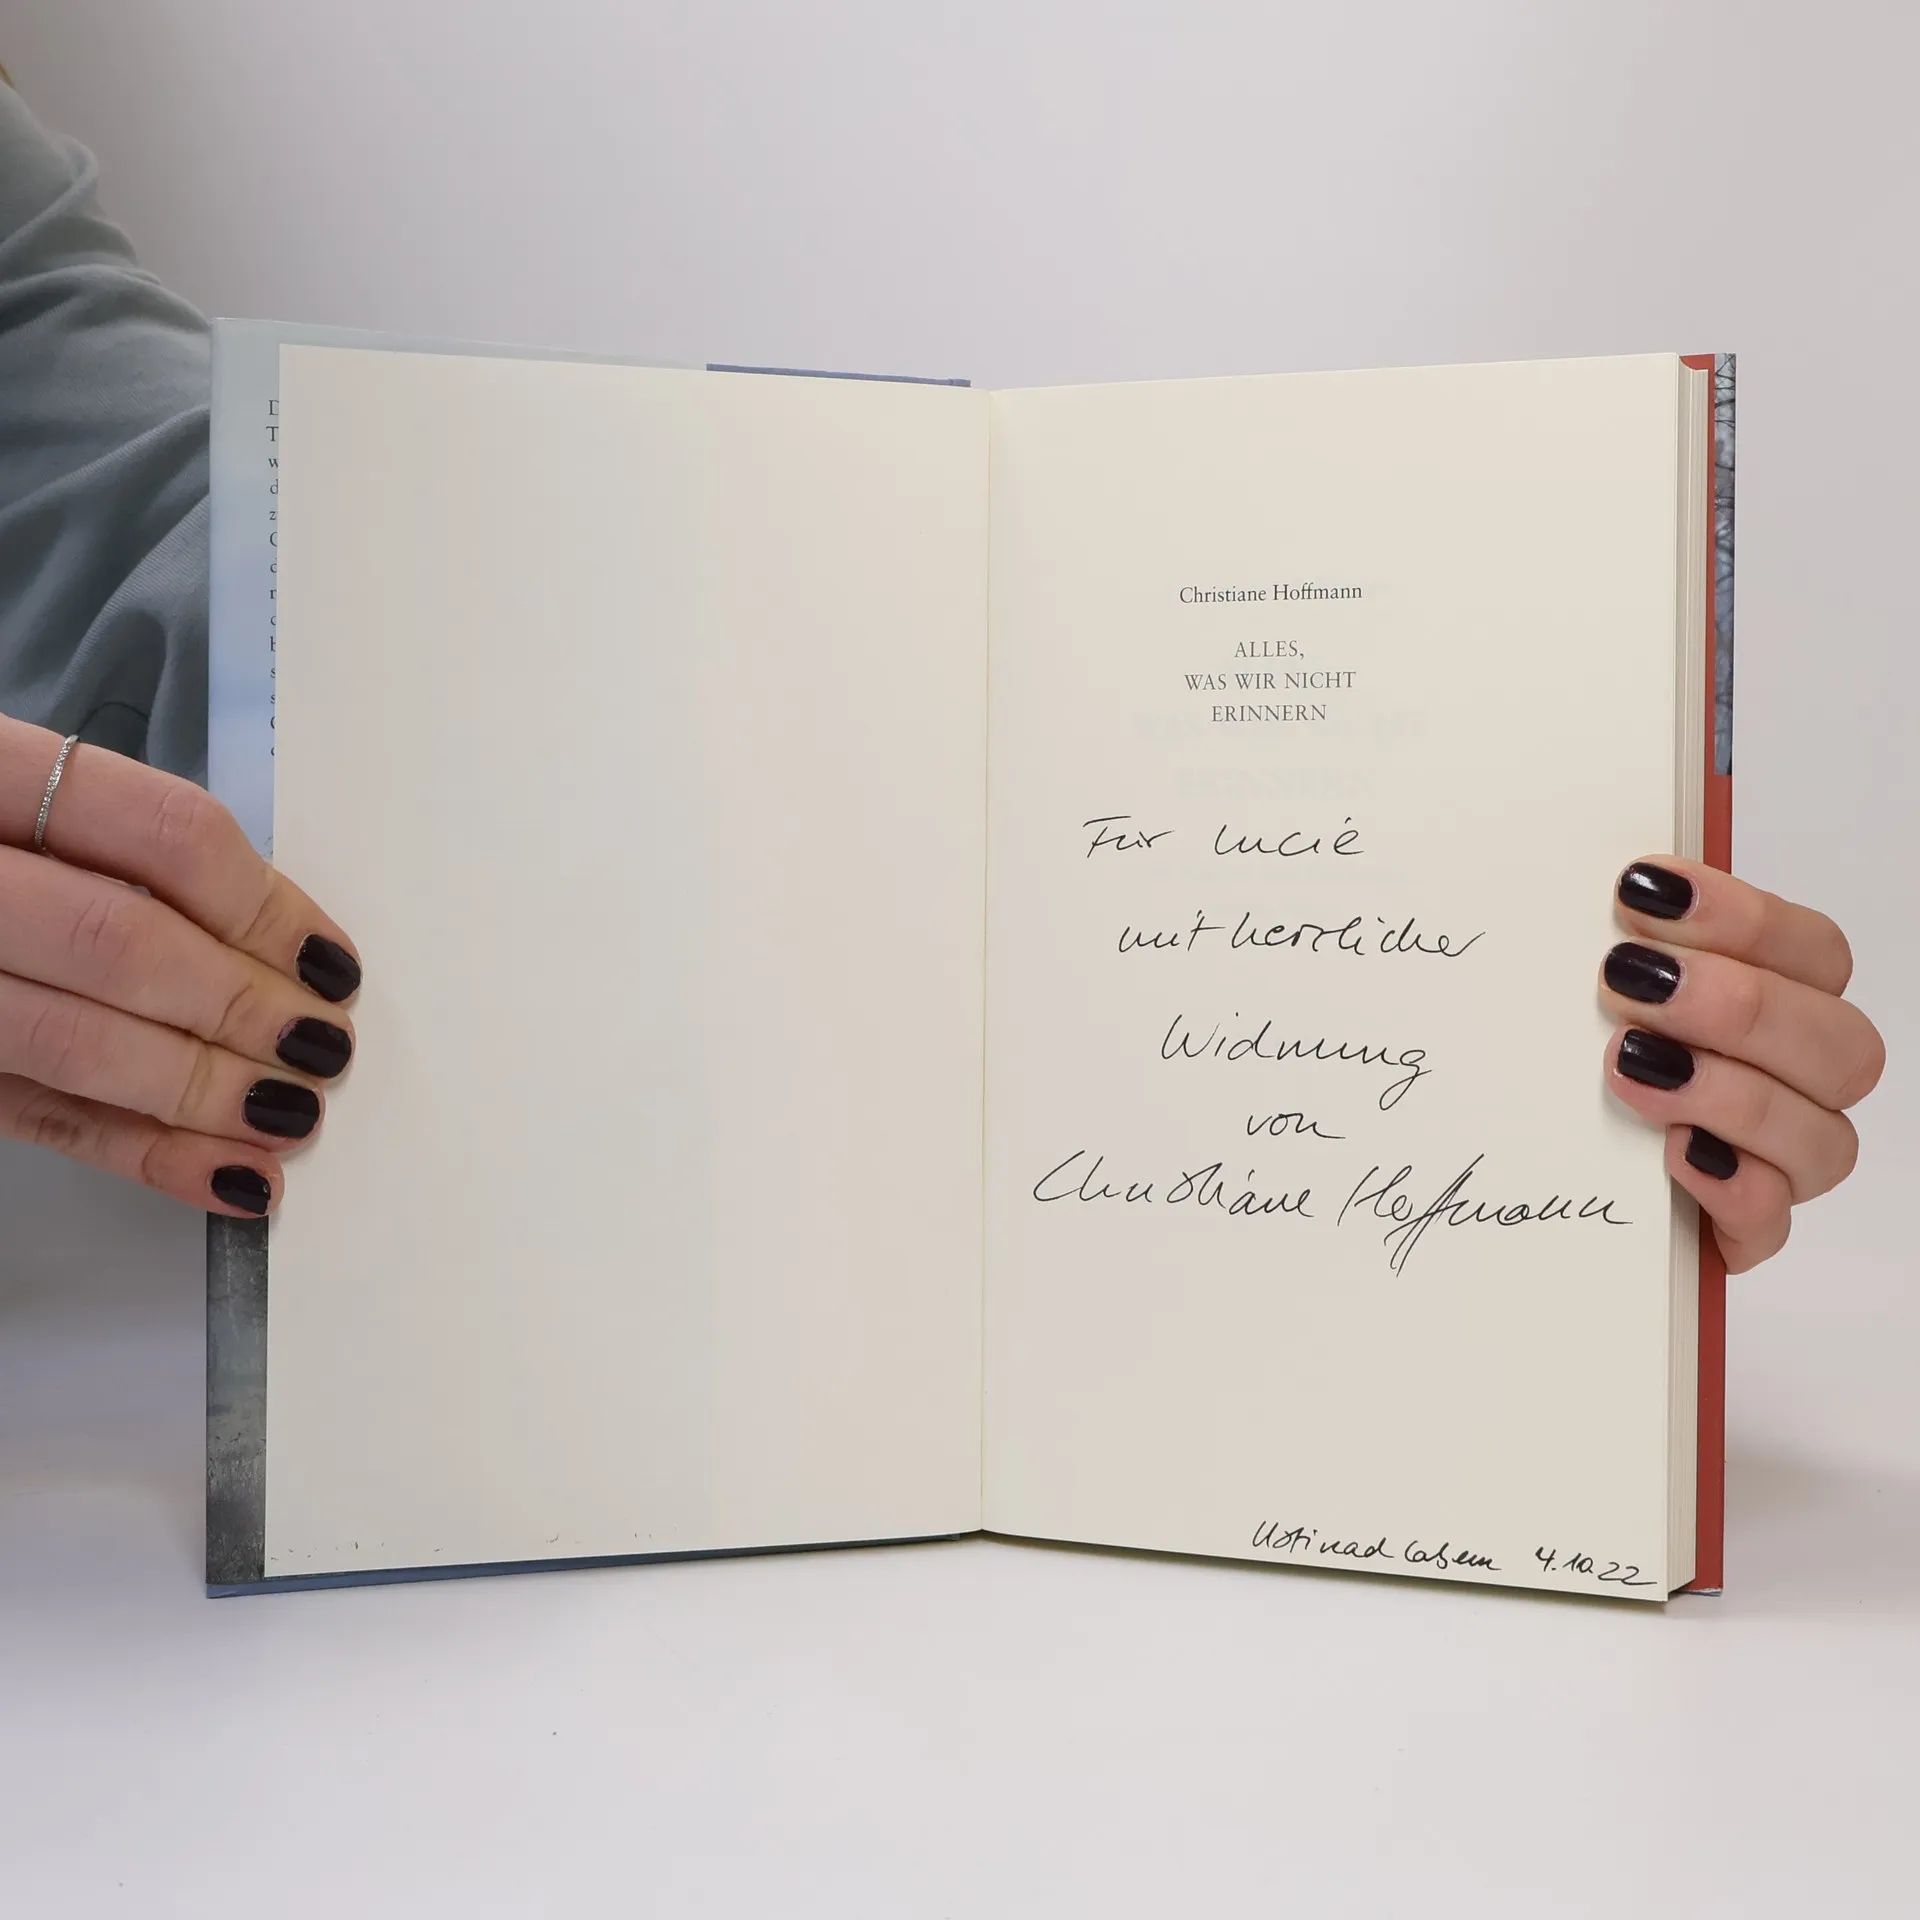 Christiane Hoffmann
ALLES,
WAS WIR NICHT
ERINNERN
Für Lucie
mit herzlicher
Widmung
von
Christiane Hoffmann
Usti nad Labem 4.10.22